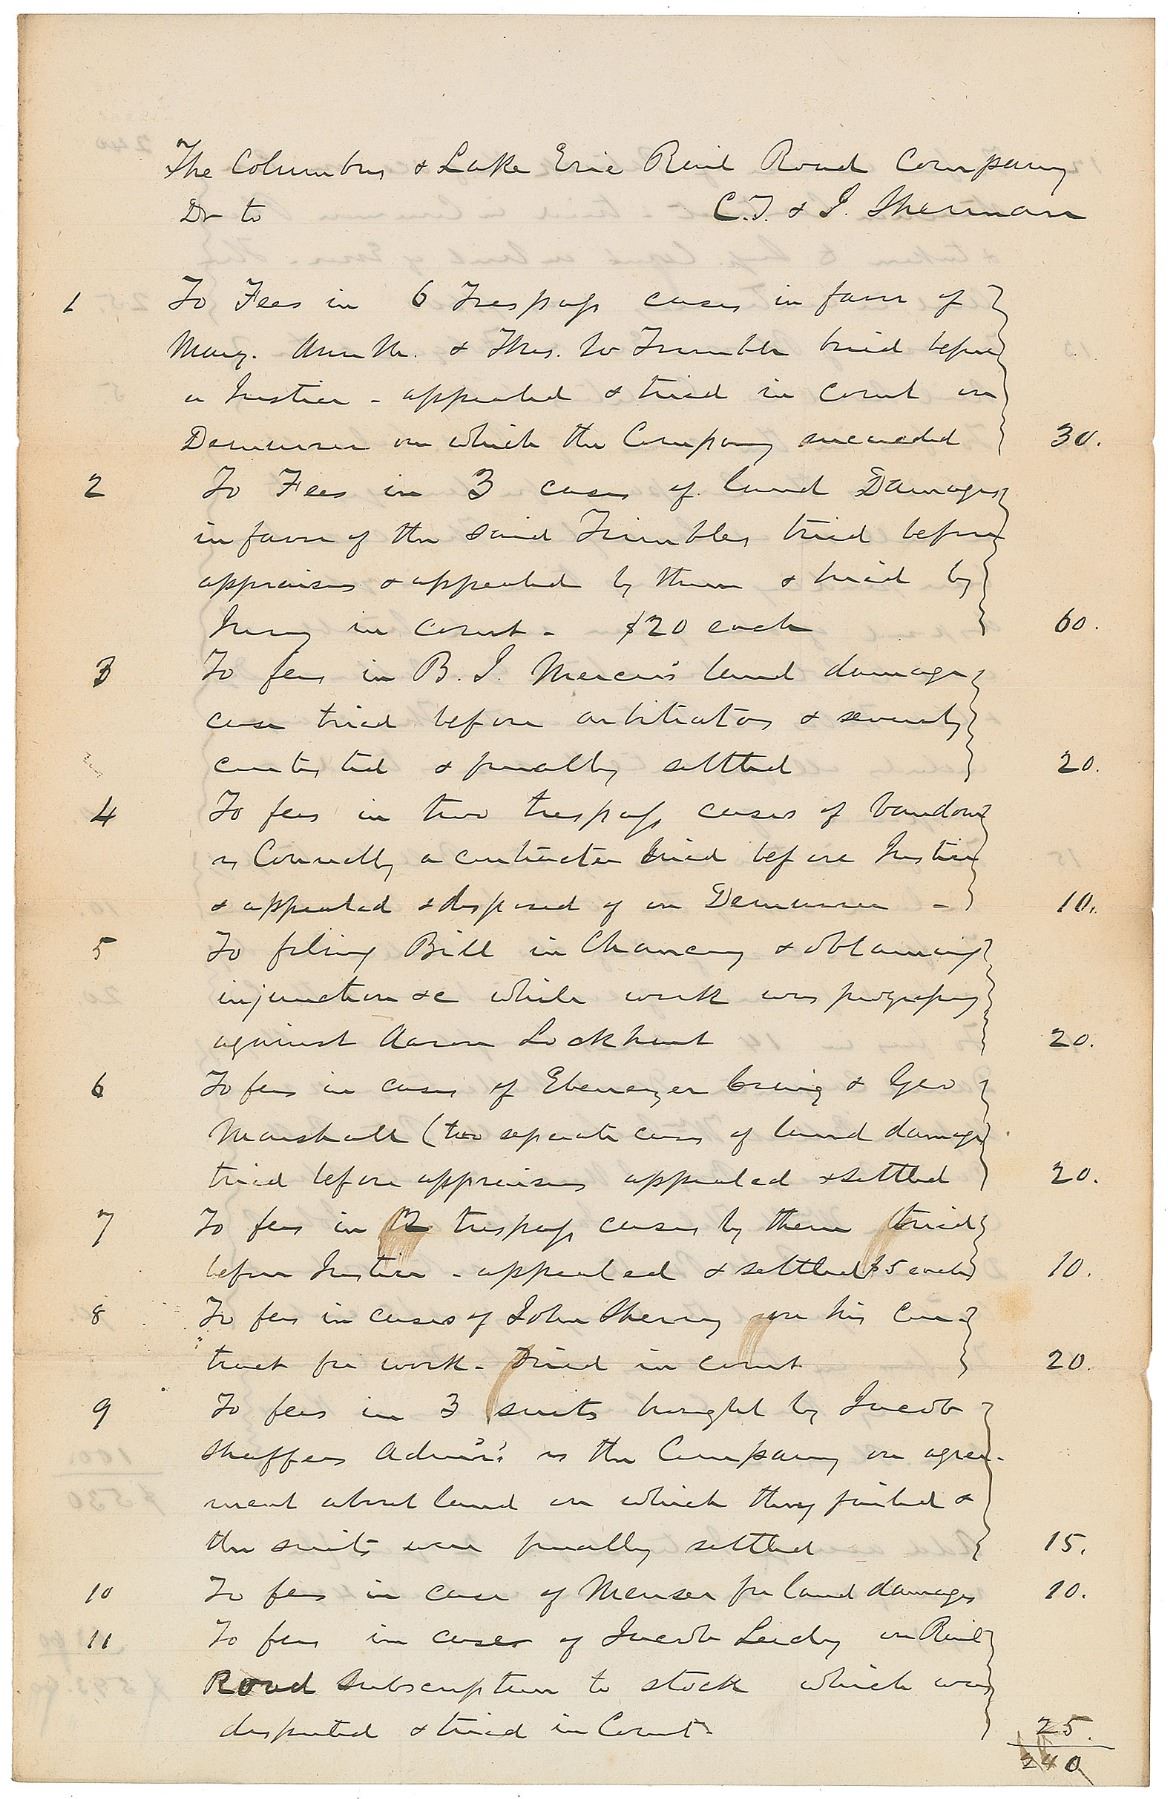 The Columbus & Lake Erie Rail Road Company
Dr to C.T. & J. Sherman
1 To Fees in 6 Trespass cases in favor of
Mary. Ann M. & Thos. W Trimble tried before
a Justice - appealed & tried in court on
Demurrer on which the Company succeeded 30.
2 To Fees in 3 cases of land Damages
in favor of the said Trimbles tried before
appraisers & appealed by them & tried by
Jury in court - $20 each 60.
3 To fees in B. J. Mercer's land damage
case tried before arbitrators & severely
contested & finally settled 20.
4 To fees in two trespass cases of
vs Connelly a contractor tried before Justice
& appealed & disposed of on Demurrer - 10.
5 To filing Bill in Chancery & obtaining
injunction &c while work was progressing
against Aaron Lockhart 20.
6 To fees in cases of Ebenezer Craig & Geo
Marshall (two separate cases of land damage
tried before appraisers appealed & settled 20.
7 To fees in 2 trespass cases by them tried
before Justice - appealed & settled $5 each 10.
8 To fees in cases of John Sherry on his con-
tract for work - Tried in court 20.
9 To fees in 3 suits brought by Jacob
Shaffers Admrs: vs the Company on agree-
ment about land on which they failed &
the suits were finally settled 15.
10 To fees in case of Menser for land damages 10.
11 To fees in cases of Jacob Leidy on Rail
Road Subscription to stock which was
disputed & tried in Court. 25.
240